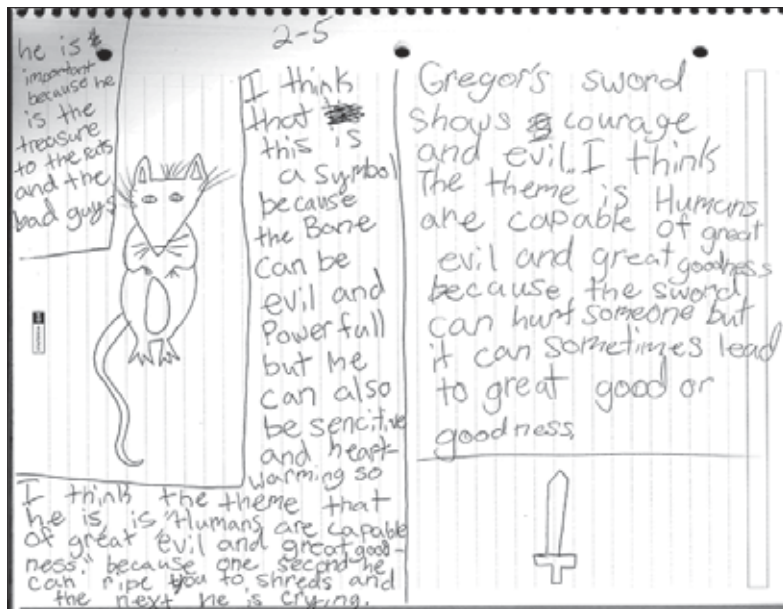 2-5
he is
important
because he
is the
treasure
to the Rats
and the
bad guys
I think
that
this is
a symbol
because
the Bane
can be
evil and
Powerfull
but he
can also
be sencitive
and heart-
warming so
I think the theme that
he is, is "Humans are capable
of great "evil and great good-
ness." because one second he
can ripe you to shreds and
the next he is crying.
Gregor's sword
shows courage
and evil. I think
The theme is Humans
are capable of great
evil and great goodness
because the sword
can hurt someone but
it can sometimes lead
to great good or
goodness.